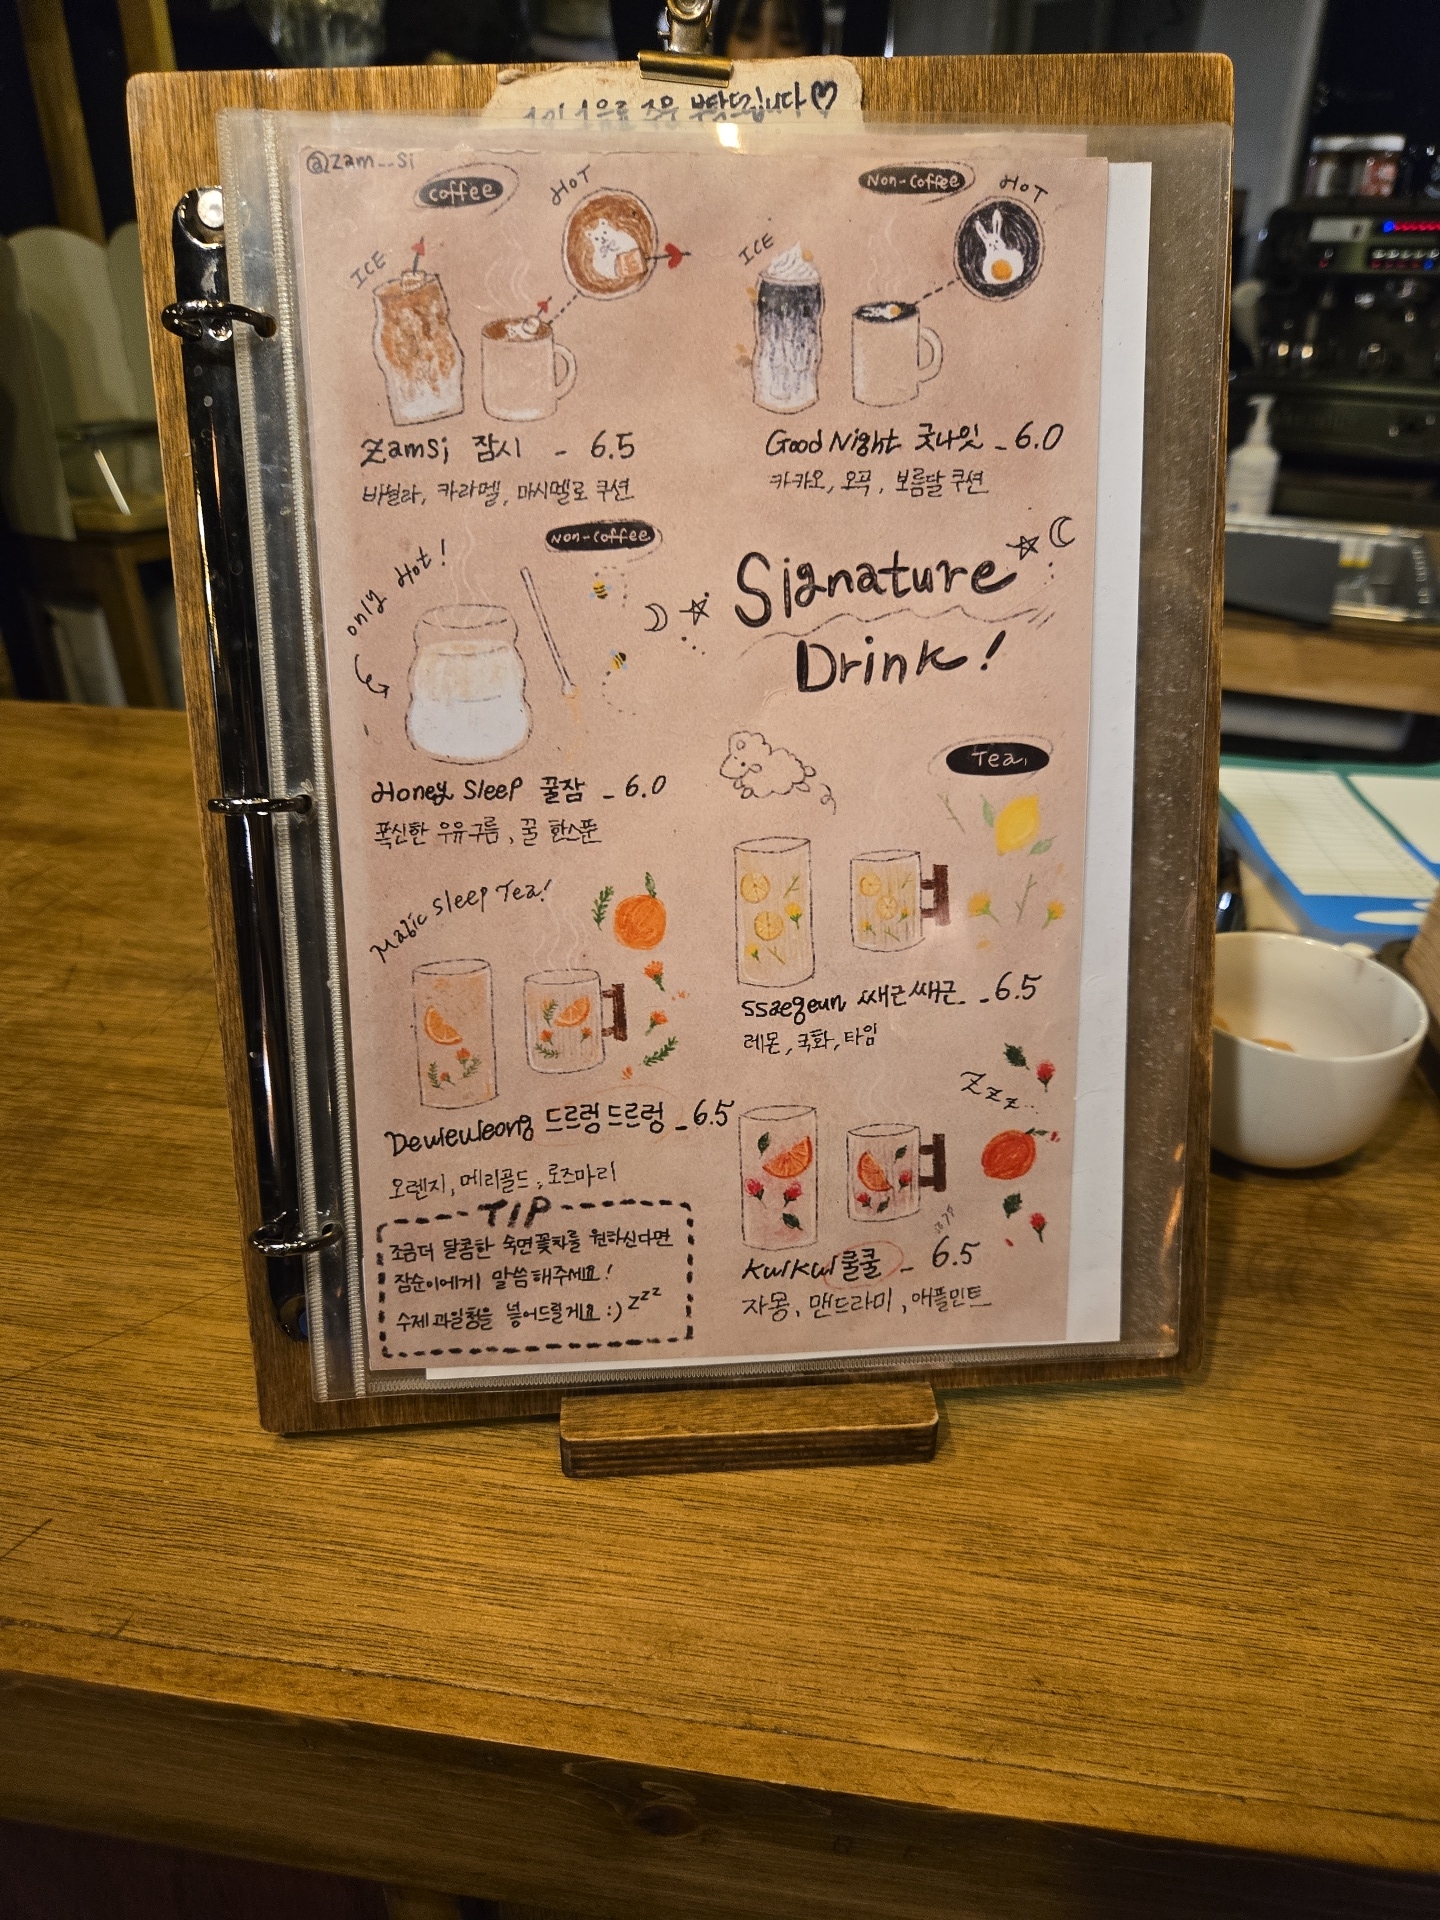 부탁드립니다♡
@zam__si
Coffee
HOT
ICE
Zamsi 잠시 - 6.5
바닐라, 카라멜, 마시멜로 쿠션
Non-Coffee
HOT
ICE
Good Night 굿나잇 - 6.0
카카오, 오곡, 보름달 쿠션
Non-Coffee
only Hot!
Honey Sleep 꿀잠 - 6.0
폭신한 우유구름, 꿀 한스푼
Signature
Drink!
Tea
ssaegeun 쌔근쌔근 - 6.5
레몬, 국화, 타임
Magic Sleep Tea!
Deuleuleong 드르렁드르렁 - 6.5
오렌지, 메리골드, 로즈마리
Zzz..
KulKul 쿨쿨 - 6.5
자몽, 맨드라미, 애플민트
TIP
조금더 달콤한 숙면꽃차를 원하신다면
잠순이에게 말씀해주세요!
수제 과일청을 넣어드릴게요 :) zzz